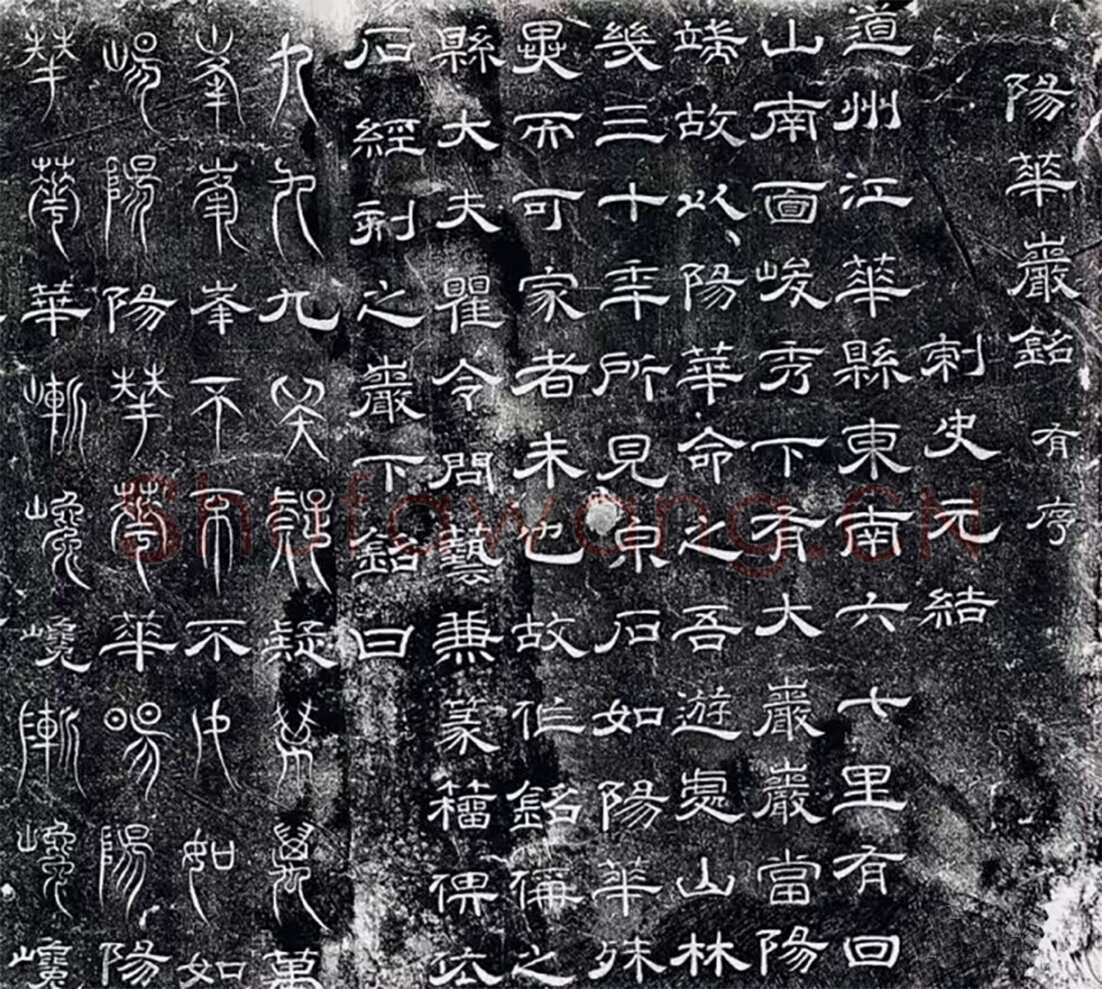 陽華巖銘有序
刺史元結
道州江華縣東南六七里有回
山南面峻秀下有大巖巖當陽
端故以陽華命之吾遊處山林
幾三十年所見泉石如陽華殊
異而可家者未也故作銘稱之
縣大夫瞿令問藝兼篆籀俾依
石經刻之巖下銘曰
九九九疑疑疑萬萬萬
峯峯峯不不不如如如
崵陽陽華華華昜陽陽
華華華嶃巉巉嶃巉巉
Shufawang.CN